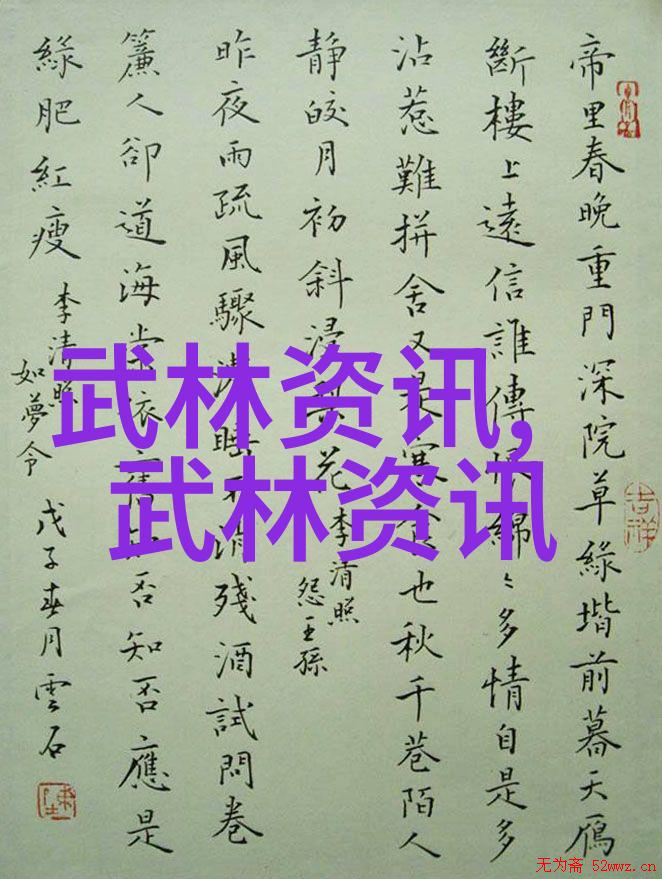 帝里春晚重門深院草綠堦前暮天鴈
斷樓上遠信誰傳恨綿々多情自是多
沾惹難拼舍又是寒食也秋千巷陌人
靜皎月初斜浸梨花
李清照
怨王孫
昨夜雨疏風驟濃睡不消殘酒試問卷
簾人卻道海棠依舊知否知否應是
綠肥紅瘦
李清照
如夢令
戊子春月雲石
武林资讯,
武林资讯
吉祥
无为斋 52wwz.cn